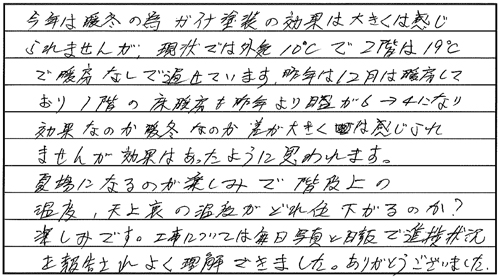 今年は暖冬の為ガイナ塗装の効果は大きくは感じ
られませんが、現状では外気10℃で2階は19℃
で暖房なしで過せています。昨年は12月は暖房して
おり1階の床暖房も昨年より目盛が6→4になり
効果なのか暖冬なのか差が大きくは感じられ
ませんが効果はあったように思われます。
夏場になるのが楽しみで階段上の
温度、天上裏の温度がどれ位下がるのか?
楽しみです。工事については毎日写真と日報で進捗状況
を報告されよく理解できました。ありがとうございました。